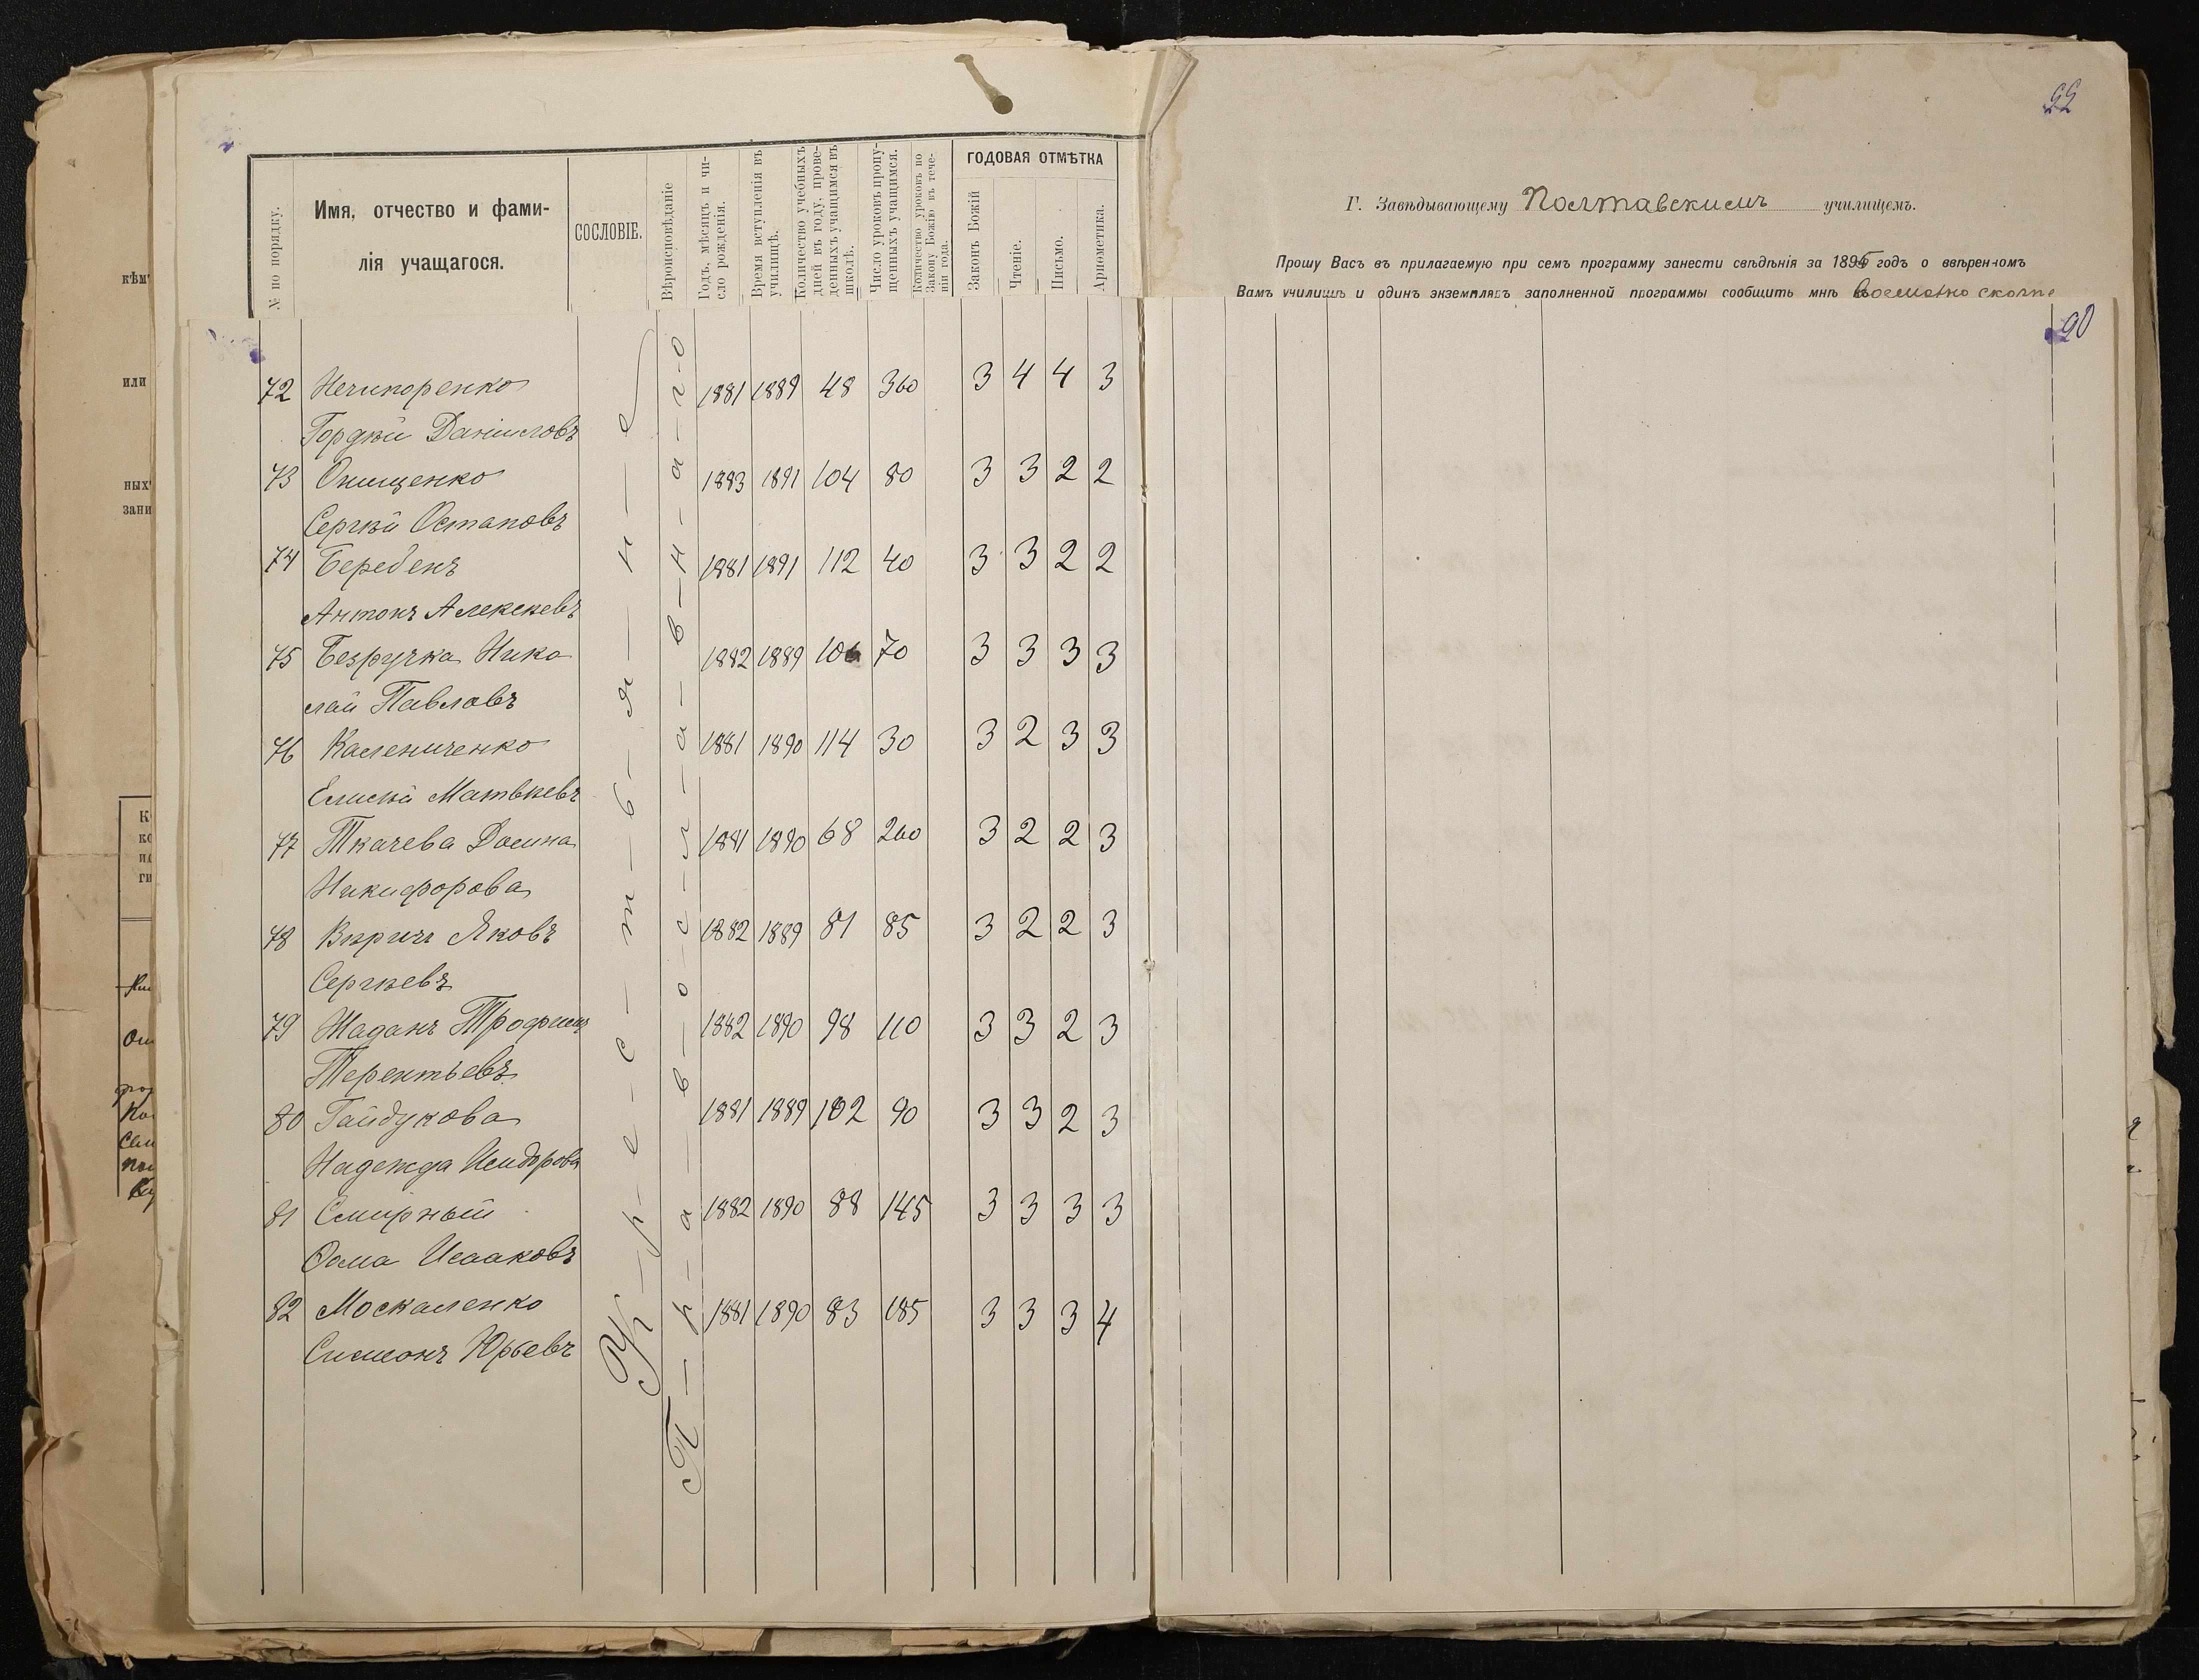 № по порядку.
Имя, отчество и фами-
лія учащагося.
СОСЛОВІЕ.
Вѣроисповѣданіе
Годъ, мѣсяцъ и чи-
сло рожденія.
Время вступленія въ
училищѣ.
Количество учебныхъ
дней въ году, прове-
денныхъ учащимся въ
школѣ.
Число уроковъ пропу-
щенныхъ учащимся.
Количество уроковъ по
Закону Божію въ тече-
ніи года.
ГОДОВАЯ ОТМѢТКА
Законъ Божій
Чтеніе.
Письмо.
Ариѳметика.
К-р-е-с-т-ь-я-н-е
П-р-а-в-о-с-л-а-в-н-а-г-о
72 Нечипоренко 1881 1889 48 360 3 4 4 3
Гордѣй Даніиловъ
73 Онищенко 1883 1891 104 80 3 3 2 2
Сергѣй Остаповъ
74 Беребенъ 1881 1891 112 40 3 3 2 2
Антонъ Алексѣевъ
75 Безручка Нико 1882 1889 106 70 3 3 3 3
лай Павловъ
76 Калениченко 1881 1890 114 30 3 2 3 3
Елисѣй Матвѣевъ
77 Ткачева Домна 1881 1890 68 260 3 2 2 3
Никифорова
78 Вирич Яковъ 1882 1889 81 85 3 2 2 3
Сергѣевъ
79 Жаданъ Трофимъ 1882 1890 98 110 3 3 2 3
Терентьевъ
80 Гайдукова 1881 1889 102 90 3 3 2 3
Надежда Исидорова
81 Смирный 1882 1890 88 145 3 3 3 3
Ѳома Исааковъ
82 Москаленко 1881 1890 83 185 3 3 3 4
Симеонъ Юрьевъ
Г. Завѣдывающему Полтавскимъ училищемъ.
Прошу Васъ въ прилагаемую при семъ программу занести свѣдѣнія за 1895 годъ о ввѣренномъ
Вамъ училищѣ и одинъ экземпляръ заполненной программы сообщить мнѣ
90
кѣм
или
ных
зани